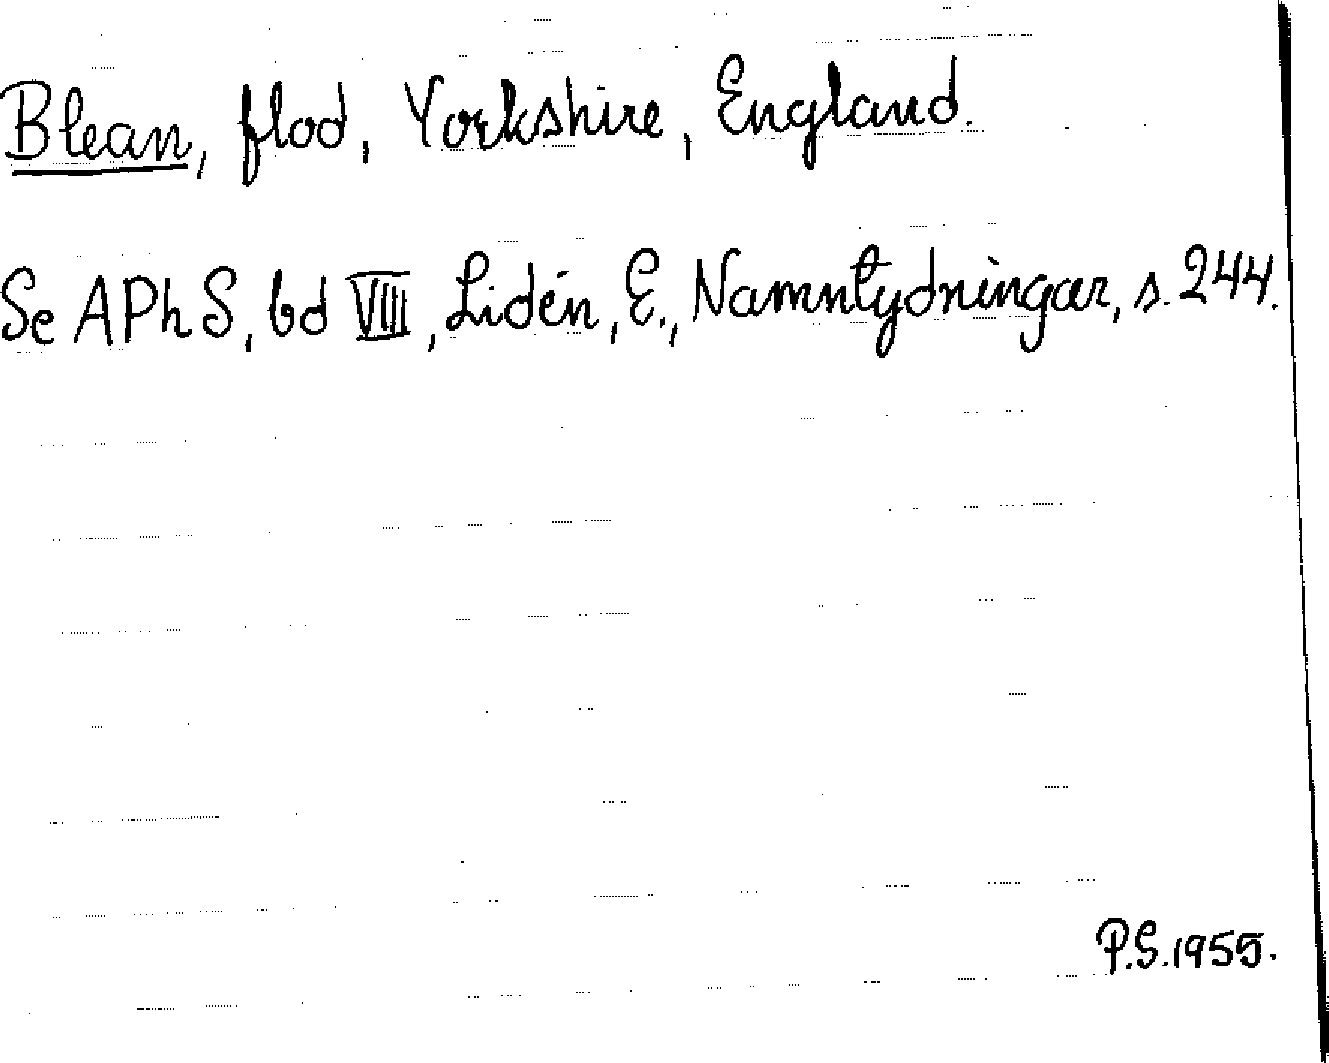 Blean, flod, Yorkshire, England.
Se APhS, bd VIII, Lidén, E., Namntydningar, s. 244.
P.S. 1955.